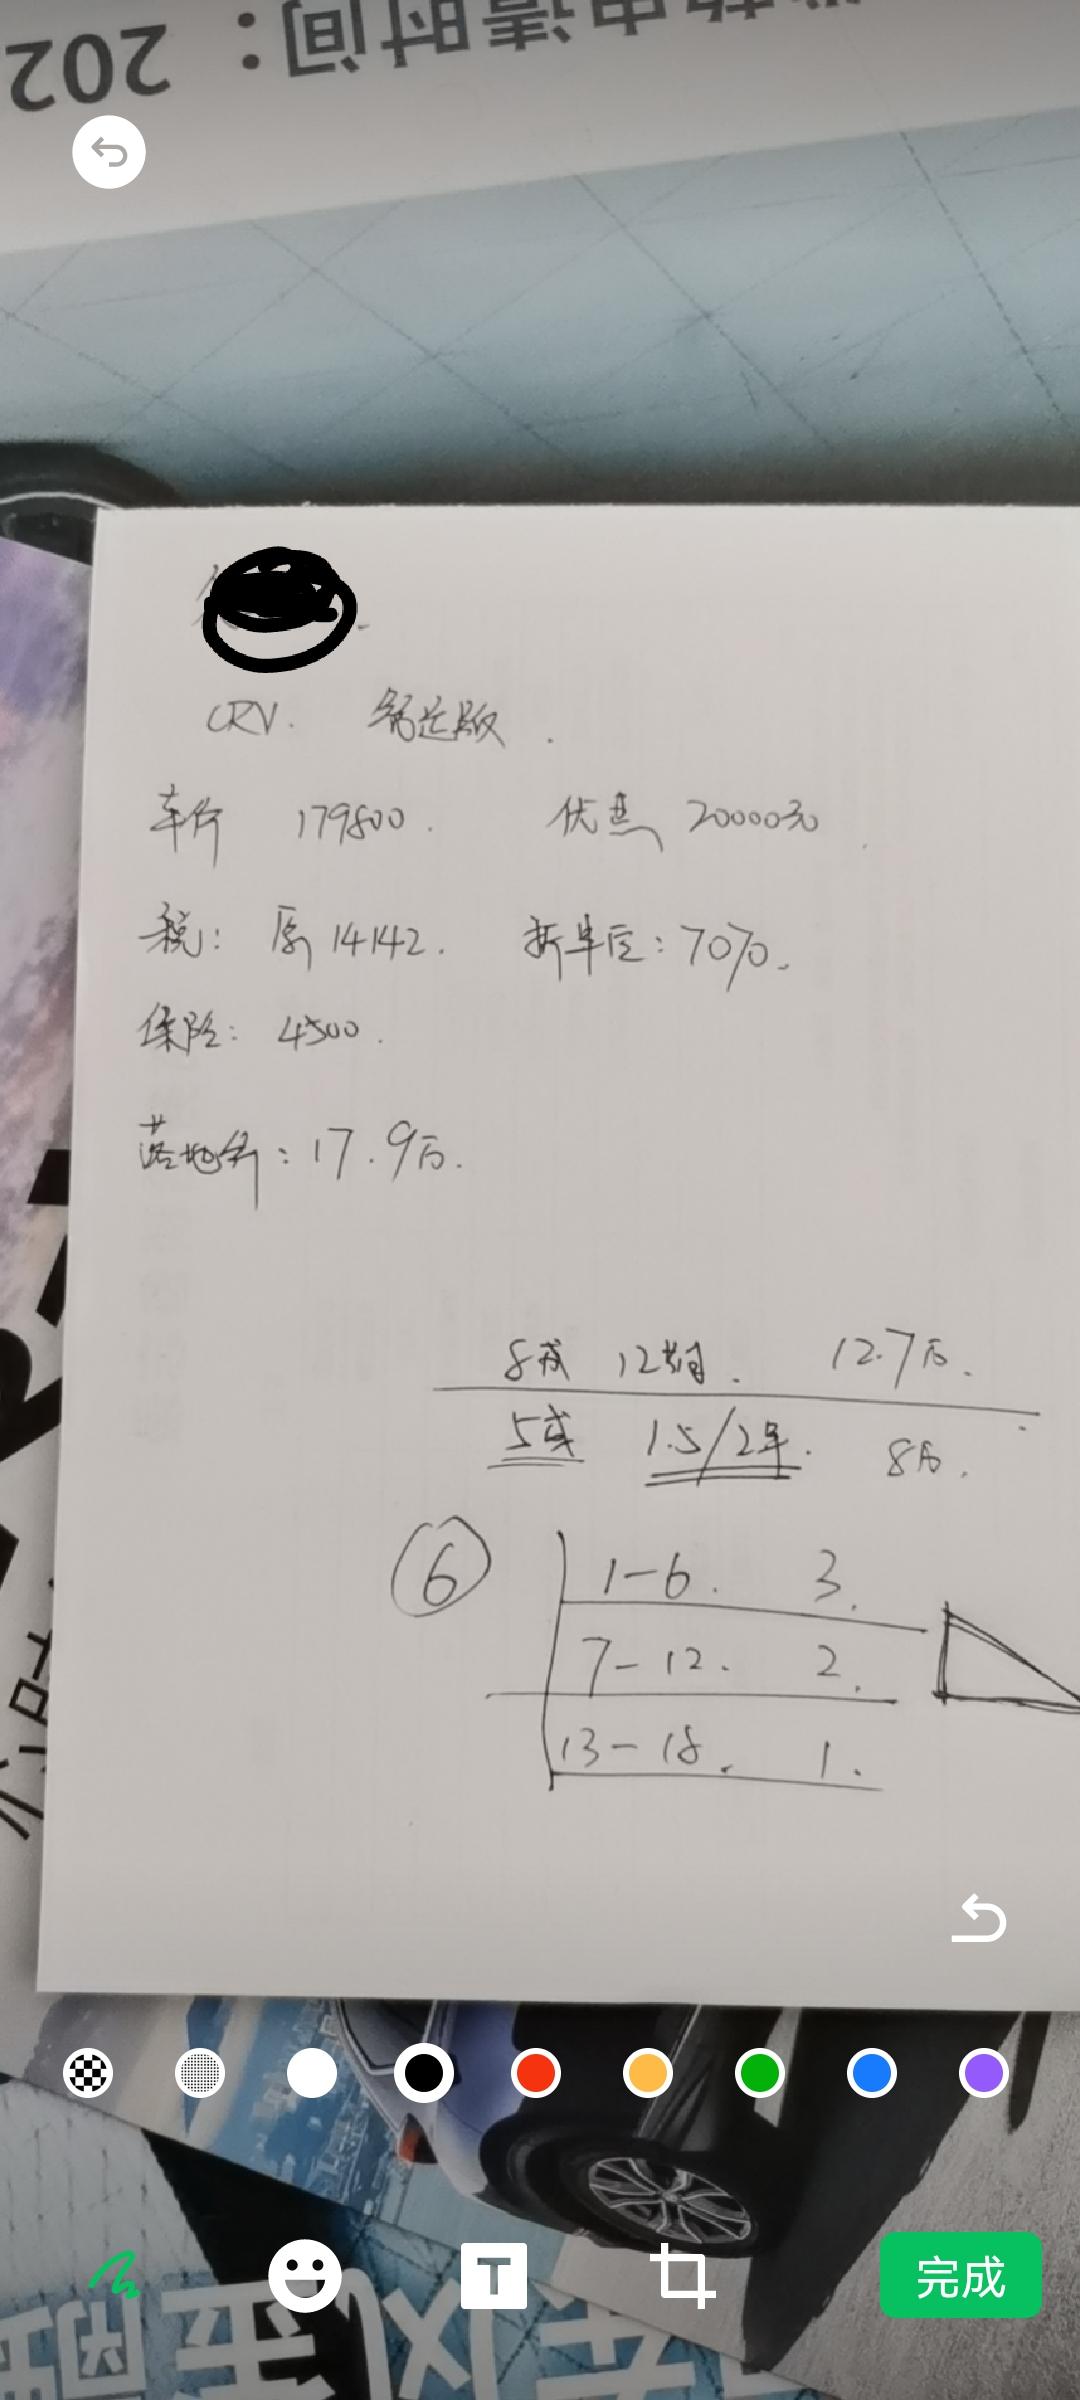 申请时间：202
CRV. 舒适版.
车价 179800. 优惠 20000元
税: 原14142. 折半后: 70%.
保险: 4500.
落地价: 17.9万.
8成 12期. 12.7万.
5成 1.5/2年. 8万.
⑥ 1-6. 3.
7-12. 2.
13-18. 1.
完成